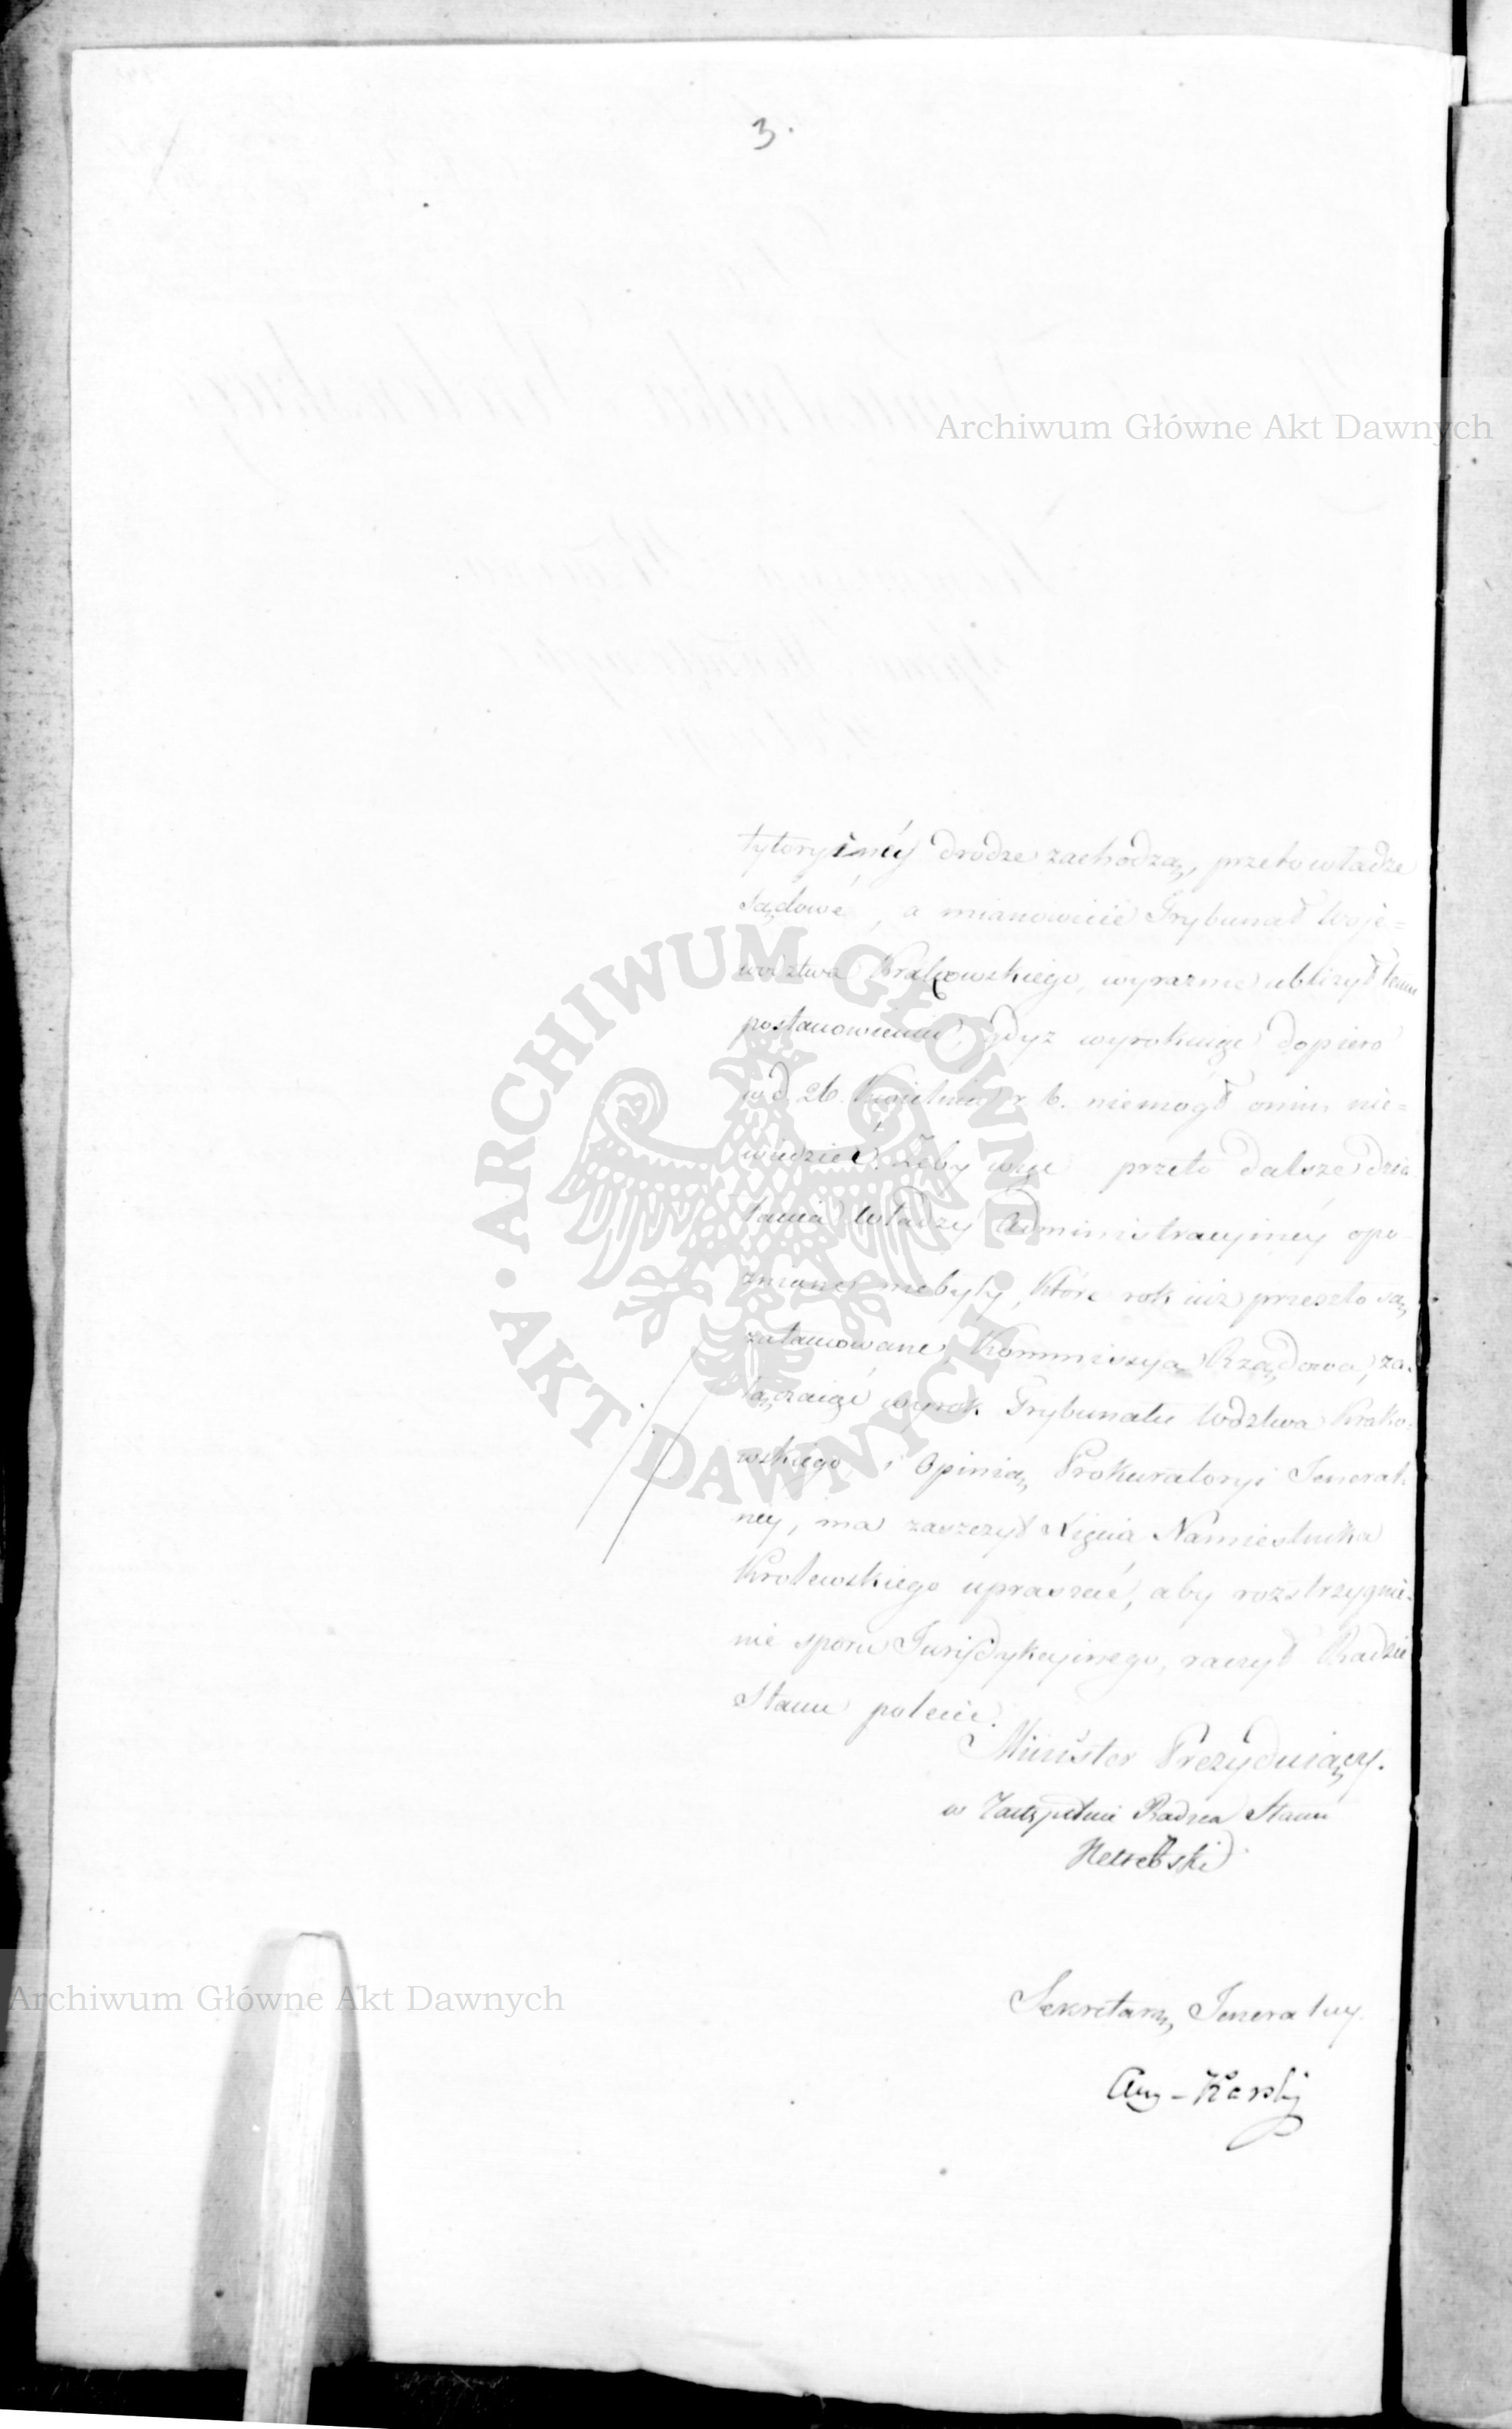 3.
Archiwum Główne Akt Dawnych
tytoryinéy drodze zachodzą, przeto władze
sądowe, a mianowicie Trybunał Woje=
wództwa Krakowskiego, wyraznie ubliżył temu
postanowieniu, gdyz wyrokuiąc dopiero
w d. 26. Kwietnia r. b. niemógł onim nie=
wiedzieć. Żeby więc przeto dalsze dzia
łania Władzy Administracyinéy opo
znione niebyły, które rok iuż przeszło są
zatamowane, Kommissyia Rządowa, za=
łączaiąc wyrok Trybunału Wdztwa Krako=
wskiego, i Opinią Prokuratoryi Jeneral=
ney, ma zaszczyt Xięcia Namiestnika
Krolewskiego upraszać, aby rozstrzygnie=
nie sporu Jurisdykcyinego, raczył Radzie
Stanu polecić.
Minister Prezyduiący.
w Zastępstwie Radca Stanu
Sekretarz Jeneralny
Aug. Karski
ARCHIWUM GŁÓWNE AKT DAWNYCH
Archiwum Główne Akt Dawnych